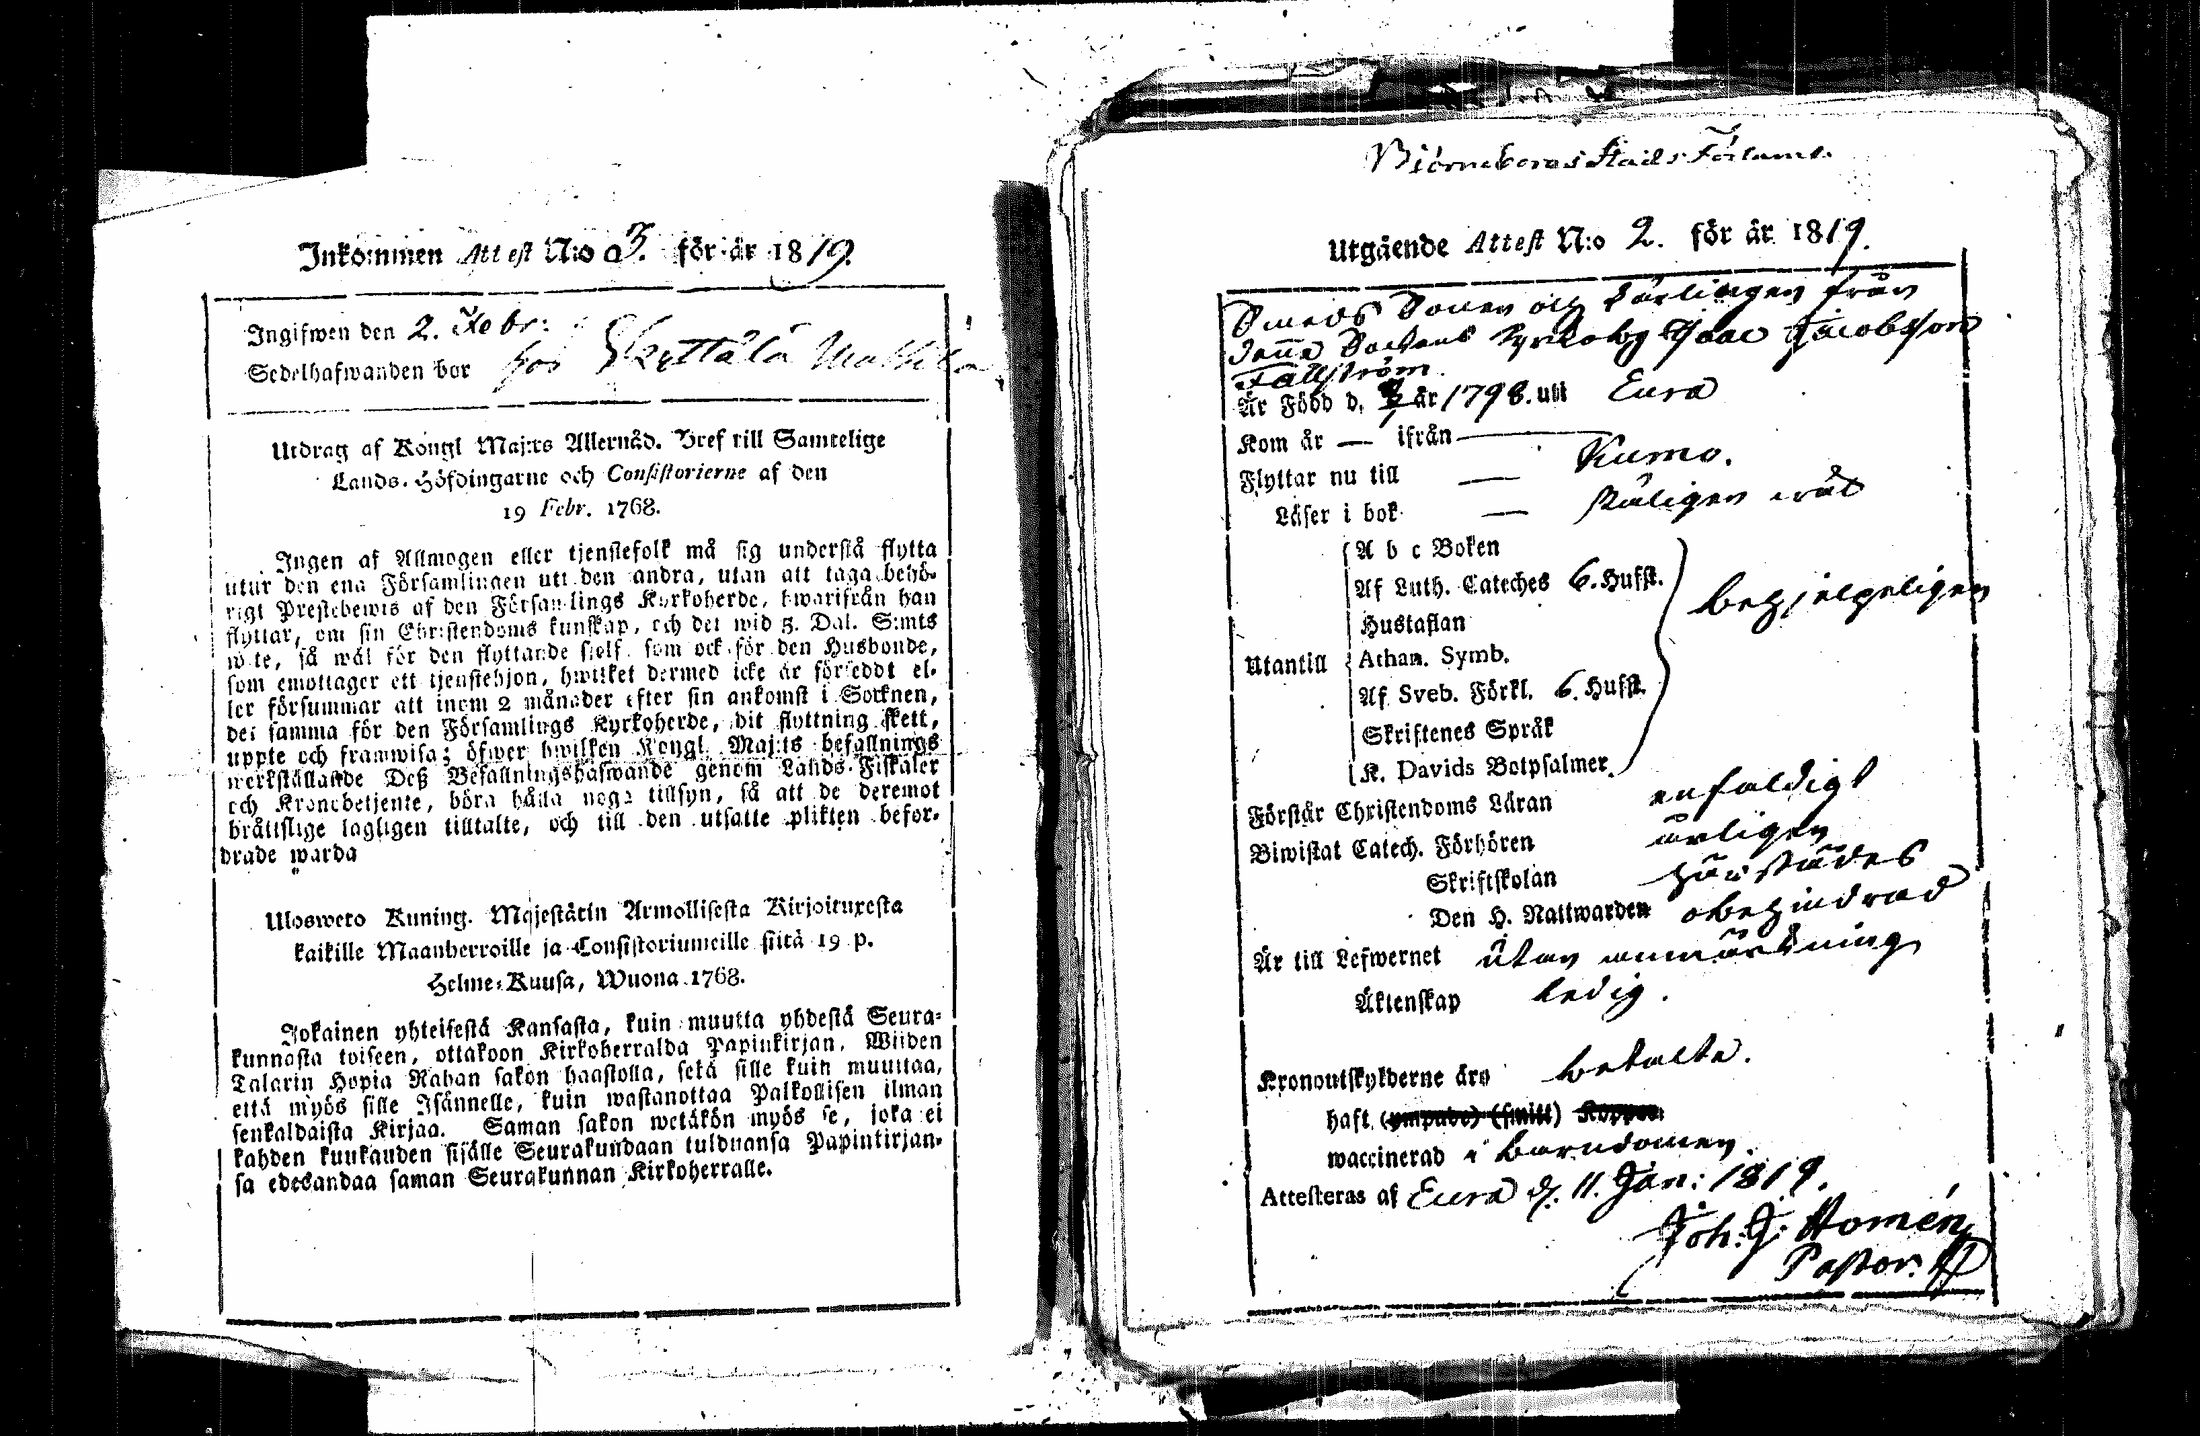 Inkommen Attest N:o 3. för år 1819.
Ingifwen den 2. Febr:
Sedelhafwanden bor hos Skyttälä Mathila
Utdrag af Kongl Maj:ts Allernåd. Bref till Samtelige
Lands-Höfdingarne och Consistorierne af den
19 Febr. 1768.
Ingen af Allmogen eller tjenstefolk må sig understå flytta
utur den ena Församlingen utt den andra, utan att taga behö-
rigt Prestebewis af den Församlings Kyrkoherde, hwarifrån han
flyttar, om sin Christendoms kunskap, och det wid 3. Dal. S:mts
wite, så wäl för den flyttande sjelf som ock för den Husbonde,
som emottager ett tjenstehjon, hwilket dermed icke är försedt el-
ler försummar att inom 2 månader efter sin ankomst i Socknen,
det samma för den Församlings Kyrkoherde, dit flyttning skett,
uppte och framwisa; öfwer hwilken Kongl. Maj:ts befallnings
werkställande Deß Befallningshafwande genom Lands-Fiskaler
och Kronobetjente, böra hålla noga tillsyn, så att de deremot
bråttslige lagligen tilltalte, och till den utsatte plikten befor-
drade warda
Ulosweto Kuning. Majestätin Armollisesta Kirjoituxesta
kaikille Maanherroille ja Consistoriumeille siitä 19 p.
Helme-Kuusa, Wuona 1768.
Jokainen yhteisestä Kansasta, kuin muutta yhdestä Seura-
kunnasta toiseen, ottakoon Kirkoherralda Papinkirjan, Wiiden
Talarin Hopia Rahan sakon haastolla, sekä sille kuin muuttaa,
että myös sille Isännelle, kuin wastanottaa Palkollisen ilman
senkaldaista Kirjaa. Saman sakon wetäkön myös se, joka ei
kahden kuukauden sisälle Seurakundaan tulduansa Papinkirjan-
sa edesandaa saman Seurakunnan Kirkoherralle.
Björneborgs Stads Förlamt.
Utgående Attest N:o 2. för år 1819.
Smeds Sonen och Lärlingen från
denna Sockens Kyrkoby Isaac Jacobsson
Fallström
Är Född d. år 1798. utt Eura
Kom år — ifrån —
Flyttar nu till — Kumo.
Läser i bok — skäligen wäl
A b c Boken
Af Luth. Cateches 6. Hufst.
Hustaflan
behjelpeligen
Utantill
Athan. Symb.
Af Sveb. Förkl. 6. Hufst.
Skriftenes Språk
K. Davids Botpsalmer.
Förstår Christendoms Läran enfaldigt
Biwistat Catech. Förhören årligen
Skriftskolan härstädes
Den H. Nattwarden obehindrad
Är till Lefwernet utan anmärkning
Äktenskap ledig.
Kronoutskylderne äro betalte.
haft (ympade) (smitt) Koppor
waccinerad i barndomen
Attesteras af Eura d. 11. Jan: 1819.
Joh: G: Homén
Pastor.